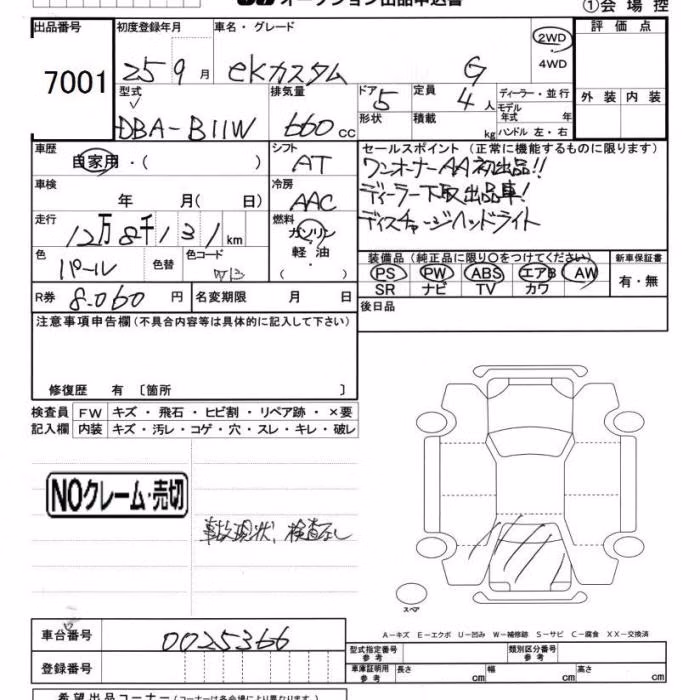 オークション出品申込書
①会場控
出品番号 初度登録年月 車名・グレード 評価点
7001 25 9月 eKカスタム G 2WD
4WD
型式 排気量 ドア 5 定員 4人 ディーラー・並行 外装 内装
モデル年式 年
DBA-B11W 660cc 形状 積載 kg ハンドル 左・右
車歴 自家用・( ) シフト AT
セールスポイント(正常に機能するものに限ります)
ワンオーナーAA初出品!!
ディーラー下取出品車!
ディスチャージヘッドライト
車検 年 月( 日) 冷房 AAC
走行 12万8千131km 燃料 ガソリン
軽油
( )
色 パール 色替 色コード W13
装備品(純正品に限り○をつけてください) 新車保証書
PS PW ABS エアB AW 有・無
SR ナビ TV カワ
R券 8.060円 名変期限 月 日 後日品
注意事項申告欄(不具合内容等は具体的に記入して下さい)
修復歴 有〔箇所 〕
検査員 FW キズ・飛石・ヒビ割・リペア跡・×要
記入欄 内装 キズ・汚レ・コゲ・穴・スレ・キレ・破レ
NOクレーム・売切
事故現状、検査なし
スペア
A−キズ E−エクボ U−凹み W−補修跡 S−サビ C−腐食 XX−交換済
車台番号 0025366
型式指定番号 参考 類別区分番号 参考
登録番号 車庫証明用 参考 長さ cm 幅 cm 高さ cm
希望出品コーナー(コーナーは各会場により異なります。)